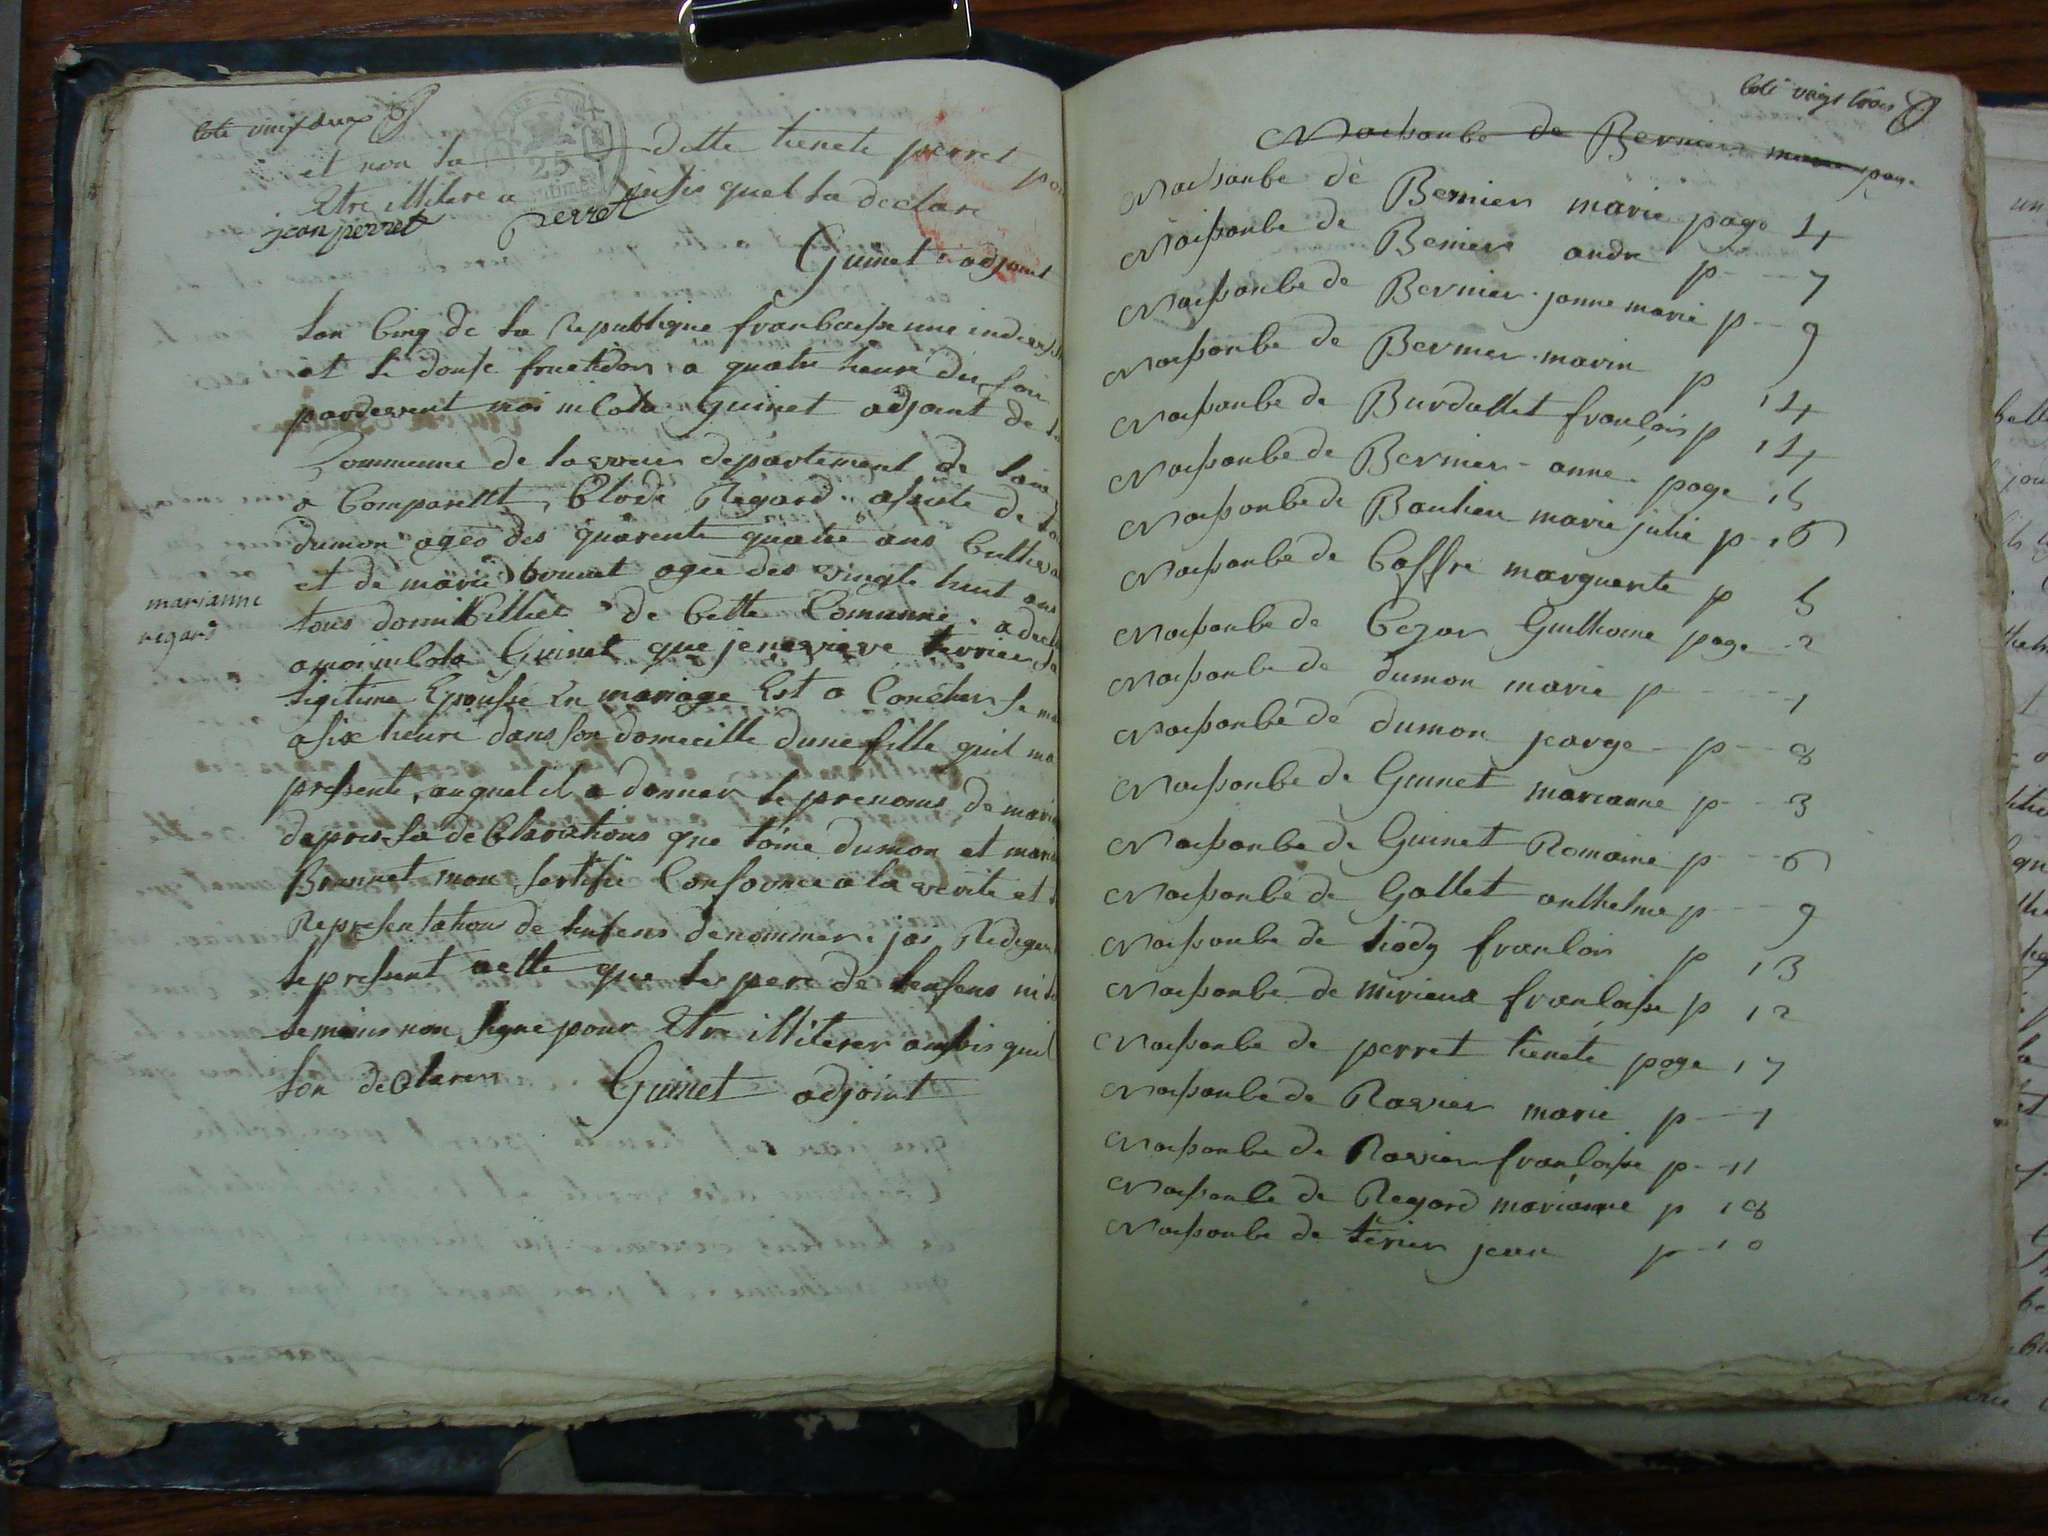 Coté vingt deux
et non la ditte tienete perret pour
Etre illitere a insis quel la declare
jean perret perret
Guinet adjoint
Lan Cinq de la Republique francaise une indivisible
et le douse fructidor a quatre heure du soir
pardevent moi nicola Guinet adjoint de la
Commune de lavour departement de lain
a Comparut, Clode Regard asiste de
dumon ageo des quarente quatre ans
et de marie brunet agee des vingte huit ans
marianne
regard
tous domiCillier de Cette Comunne a
a moi nicola Guinet que jenevieve terrier sa
ligitime Epousse En mariage Est a Coucher
a six heure dans son domicille dune fille quil ma
presente, auquel il a donner le prenoms de
dapres la deClarations que tome dumon et marie
Brunnet mon sertifie Conforme a la verite et
Representations de lenfens denommer. jai Redigee
le present actte que le pere de lenfens ni
temoins non signe pour Etre illiterer ansis quil
lon deClarer Guinet adjoint
Coté vingt trois
Naissanbe de Bernier marie page
Naissanbe de Bernier marie page 4
Naissanbe de Bernier andre p 7
Naissanbe de Bernier janne marie p 9
Naissanbe de Bernier marin p 14
Naissanbe de Burdallet franCois p 14
Naissanbe de Bernier anne page 15
Naissanbe de Baulieu marie julie p 16
Naissanbe de Coffre marguerite p 5
Naissanbe de Cezar Guilhome page 2
Naissanbe de dumon marie p 1
Naissanbe de dumon jearge p 8
Naissanbe de Guinet marianne p 3
Naissanbe de Guinet Romaine p 6
Naissanbe de Gallet anthelme p 9
Naissanbe de liody franCois p 13
Naissanbe de mirieux franCaise p 12
Naissanbe de perret tienete page 17
Naissanbe de Ravier marie p 1
Naissanbe de Ravier franCoise p 11
Naissanbe de Regard marianne p 18
Naissanbe de terier jean p 10